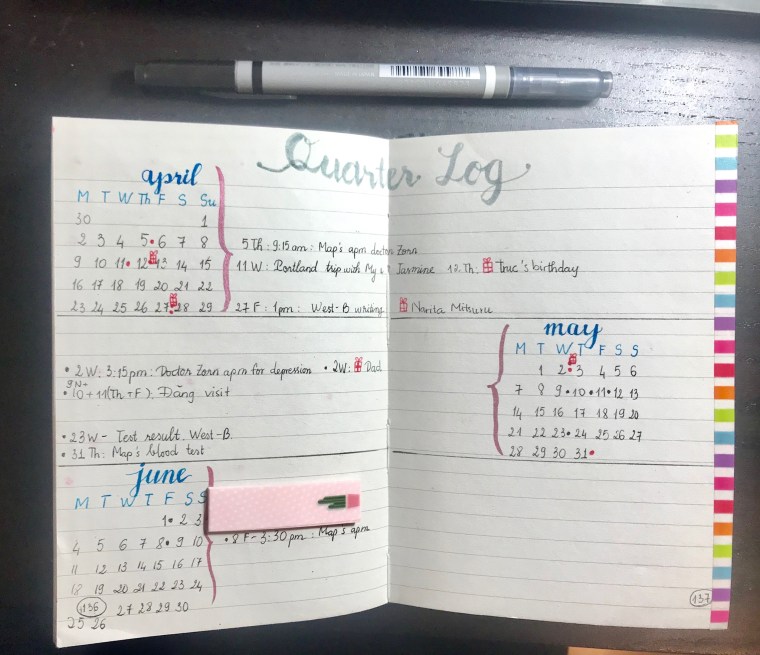 Quarter Log
april
M T W Th F S Su
30 1
2 3 4 5 6 7 8
9 10 11 12 13 14 15
16 17 18 19 20 21 22
23 24 25 26 27 28 29
5 Th: 9:15 am: Map's apm doctor Zorn
11 W: Portland trip with My & Jasmine 12. Th: Truc's birthday
27 F: 1pm: West-B writing Narita Mitsuru
may
M T W T F S S
1 2 3 4 5 6
7 8 9 10 11 12 13
14 15 16 17 18 19 20
21 22 23 24 25 26 27
28 29 30 31
• 2 W: 3:15pm: Doctor Zorn apm for depression • 2W: Dad
9N+
• 10 + 11 (Th + F). Đăng visit
• 23 W - Test result West-B.
• 31 Th: Map's blood test
june
M T W T F S S
1 2 3
4 5 6 7 8 9 10
11 12 13 14 15 16 17
18 19 20 21 22 23 24
136 27 28 29 30
25 26
• 8 F - 3:30 pm: Map's apm
137